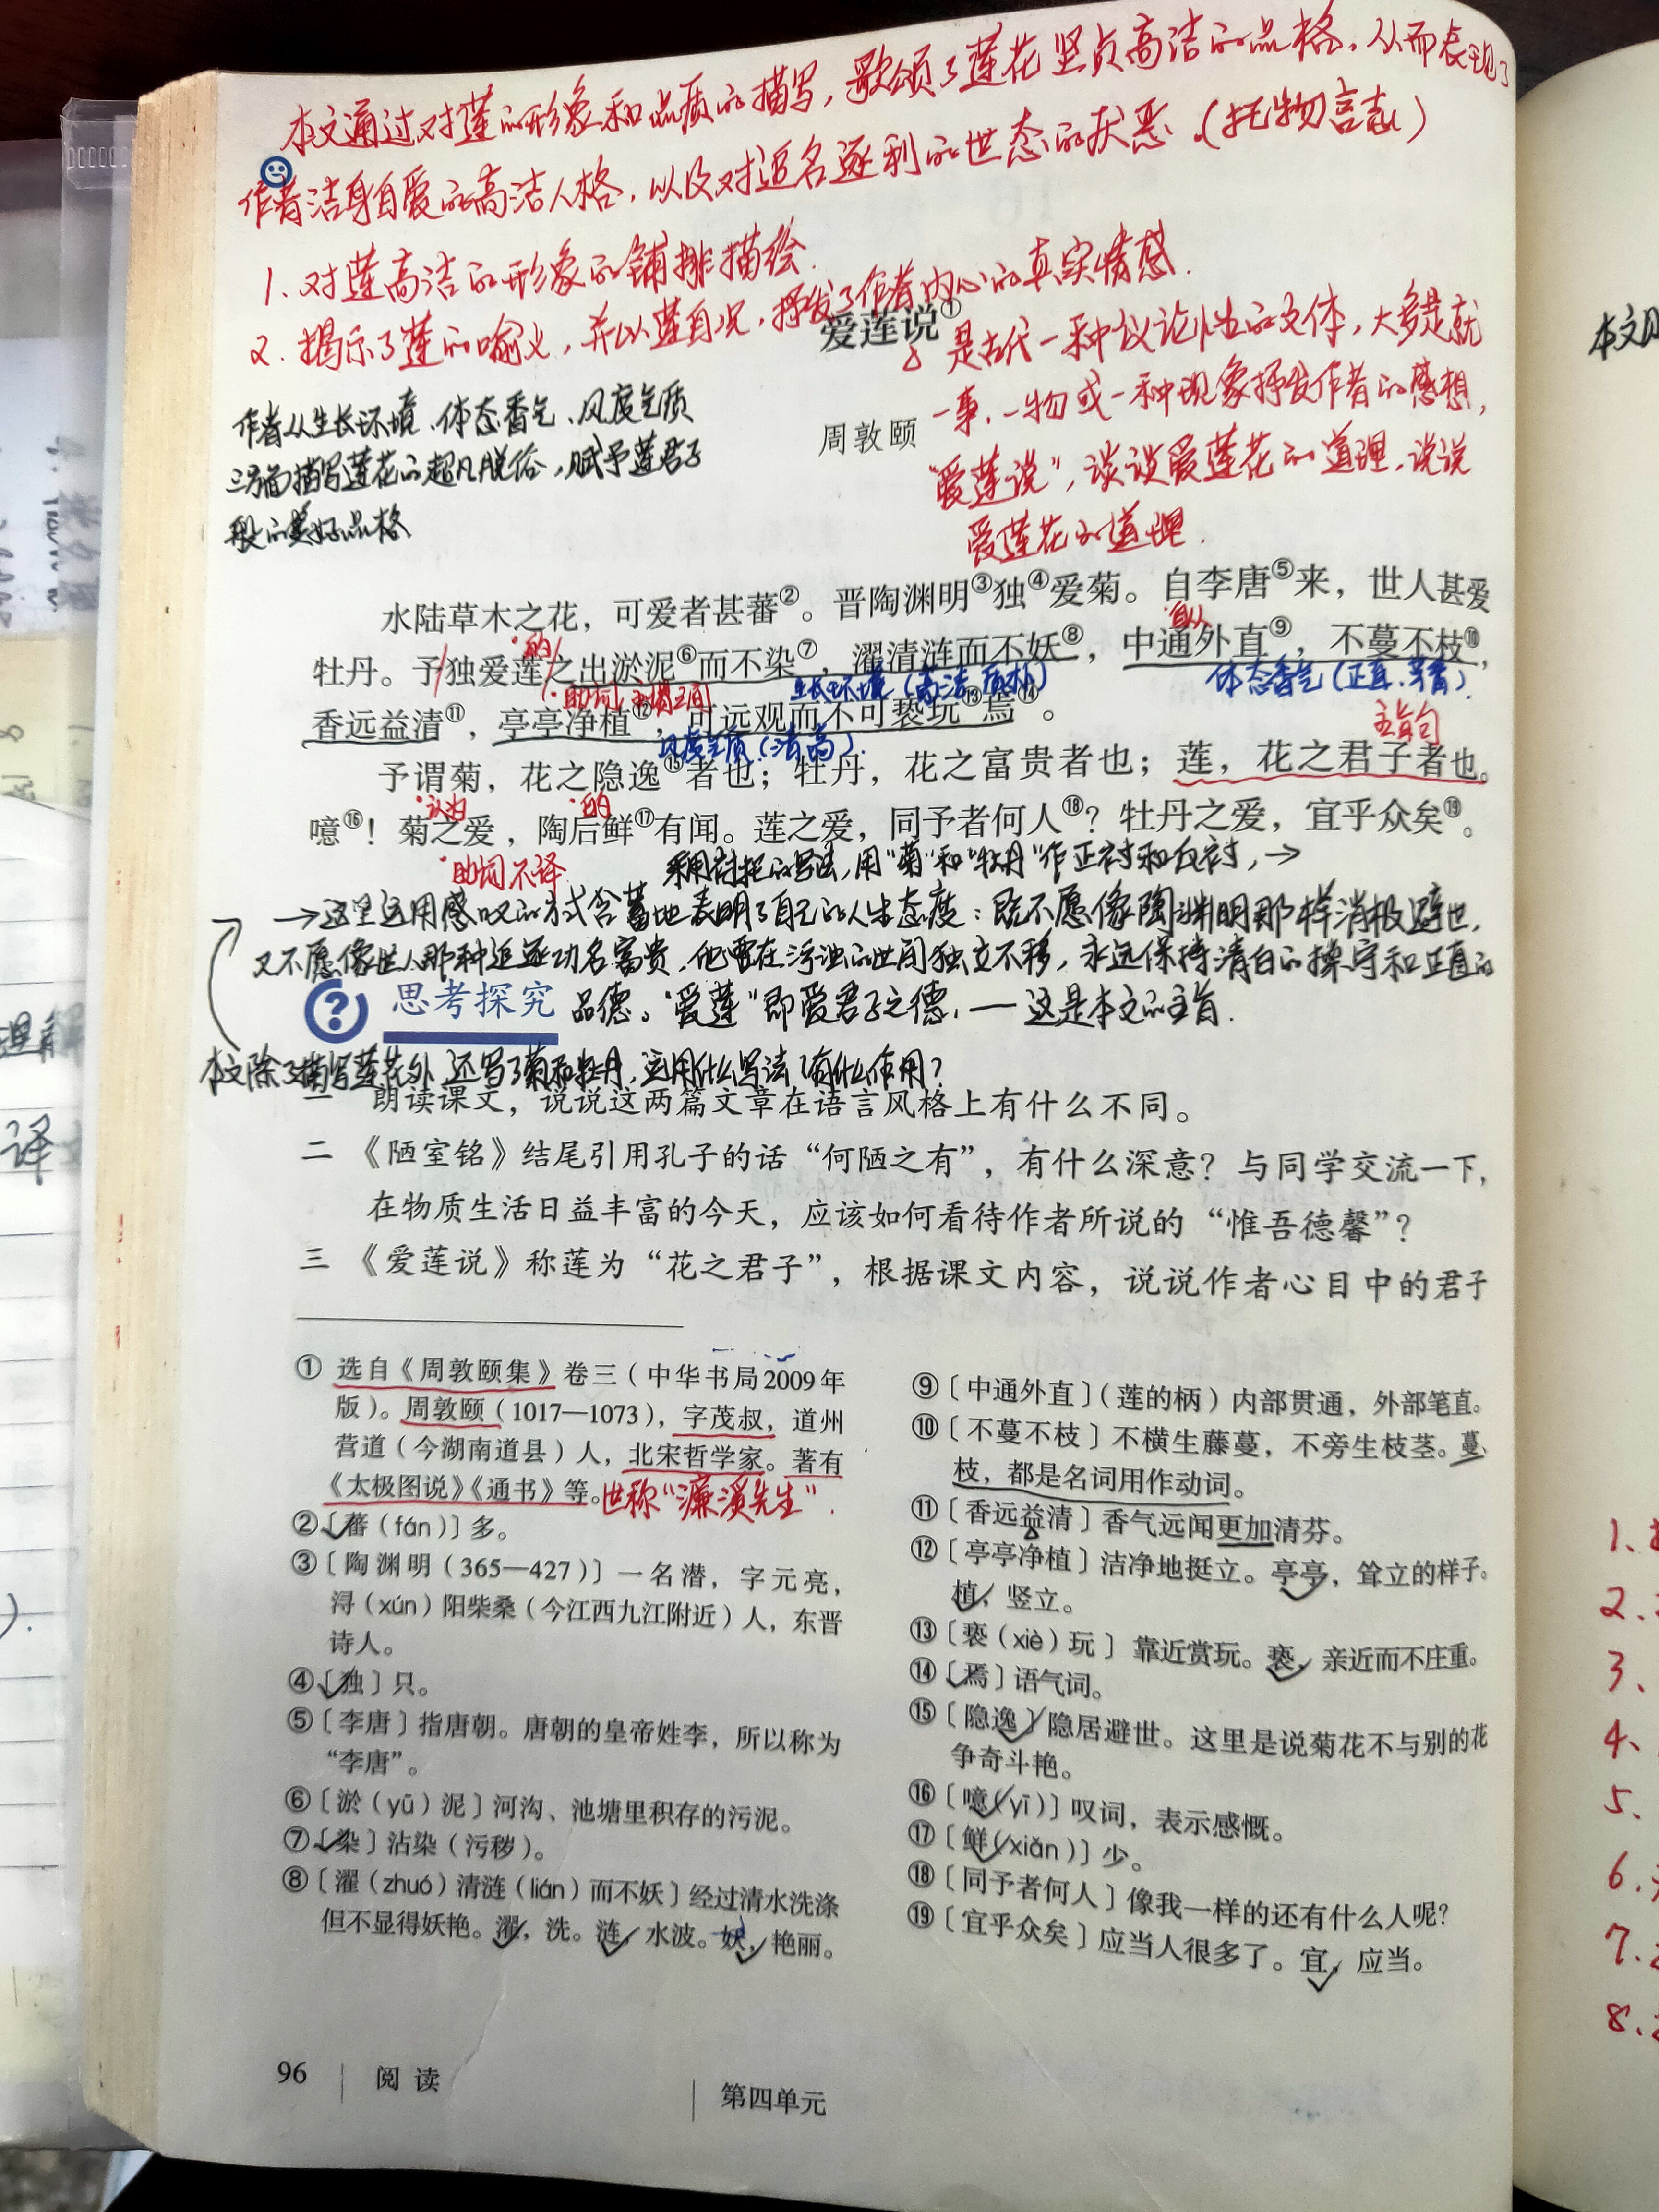 本文通过对莲的形象和品质的描写，歌颂了莲花坚贞高洁的品格，从而表现了
作者洁身自爱的高洁人格，以及对追名逐利的世态的厌恶。（托物言志）
1、对莲高洁的形象的铺排描绘.
2、揭示了莲的喻义，并以莲自况，抒发了作者内心的真实情感.
爱莲说①
是古代一种议论性的文体，大多是就
一事、一物或一种现象抒发作者的感想，
“爱莲说”，谈谈爱莲花的道理，说说
爱莲花的道理.
周敦颐
作者从生长环境、体态香气、风度气质
三方面描写莲花的超凡脱俗，赋予莲君子
般的美好品格
水陆草木之花，可爱者甚蕃②。晋陶渊明③独④爱菊。自李唐⑤来，世人甚爱
的
自从
牡丹。予独爱莲之出淤泥⑥而不染⑦，濯清涟而不妖⑧，中通外直⑨，不蔓不枝⑩，
助词，主谓之间
生长环境（高洁、质朴）
体态香气（正直、芳香）.
香远益清⑪，亭亭净植⑫，可远观而不可亵玩⑬焉⑭。
风度气质（清高）.
主旨句
予谓菊，花之隐逸⑮者也；牡丹，花之富贵者也；莲，花之君子者也。
认为
的
噫⑯！菊之爱，陶后鲜⑰有闻。莲之爱，同予者何人⑱？牡丹之爱，宜乎众矣⑲。
助词不译
采用衬托的写法，用“菊”和“牡丹”作正衬和反衬，→
→这里运用感叹的方式含蓄地表明了自己的人生态度：既不愿像陶渊明那样消极避世，
又不愿像世人那种追逐功名富贵，他要在污浊的世间独立不移，永远保持清白的操守和正直的
思考探究
品德。“爱莲”即爱君子之德，—这是本文的主旨.
本文除了描写莲花外，还写了菊和牡丹，运用什么写法？有什么作用？
一 朗读课文，说说这两篇文章在语言风格上有什么不同。
二 《陋室铭》结尾引用孔子的话“何陋之有”，有什么深意？与同学交流一下，
在物质生活日益丰富的今天，应该如何看待作者所说的“惟吾德馨”？
三 《爱莲说》称莲为“花之君子”，根据课文内容，说说作者心目中的君子
① 选自《周敦颐集》卷三（中华书局2009年
版）。周敦颐（1017—1073），字茂叔，道州
营道（今湖南道县）人，北宋哲学家。著有
《太极图说》《通书》等。世称“濂溪先生”.
②〔蕃（fán）〕多。
③〔陶渊明（365—427）〕一名潜，字元亮，
浔（xún）阳柴桑（今江西九江附近）人，东晋
诗人。
④〔独〕只。
⑤〔李唐〕指唐朝。唐朝的皇帝姓李，所以称为
“李唐”。
⑥〔淤（yū）泥〕河沟、池塘里积存的污泥。
⑦〔染〕沾染（污秽）。
⑧〔濯（zhuó）清涟（lián）而不妖〕经过清水洗涤
但不显得妖艳。濯，洗。涟，水波。妖，艳丽。
⑨〔中通外直〕（莲的柄）内部贯通，外部笔直。
⑩〔不蔓不枝〕不横生藤蔓，不旁生枝茎。蔓、
枝，都是名词用作动词。
⑪〔香远益清〕香气远闻更加清芬。
⑫〔亭亭净植〕洁净地挺立。亭亭，耸立的样子。
植，竖立。
⑬〔亵（xiè）玩〕靠近赏玩。亵，亲近而不庄重。
⑭〔焉〕语气词。
⑮〔隐逸〕隐居避世。这里是说菊花不与别的花
争奇斗艳。
⑯〔噫（yī）〕叹词，表示感慨。
⑰〔鲜（xiǎn）〕少。
⑱〔同予者何人〕像我一样的还有什么人呢？
⑲〔宜乎众矣〕应当人很多了。宜，应当。
96 阅读
第四单元
译
本文
1、
2、
3、
4、
5、
6、
7、
8、